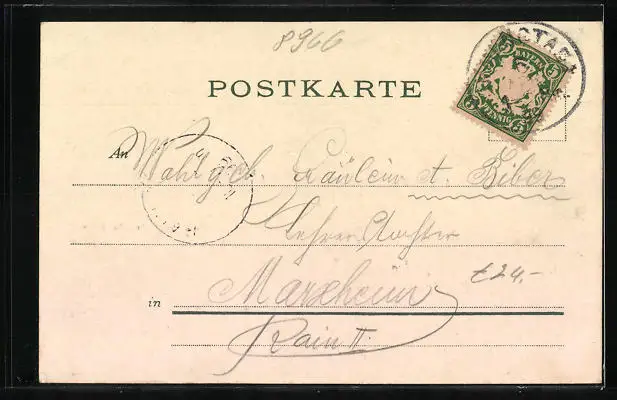 8966
POSTKARTE
BAYERN
5 5
PFENNIG
5 5
An Wohlgeb. Fräulein A. Biber
Lehrerstochter
€24,-
in Marxheim
Rain II.